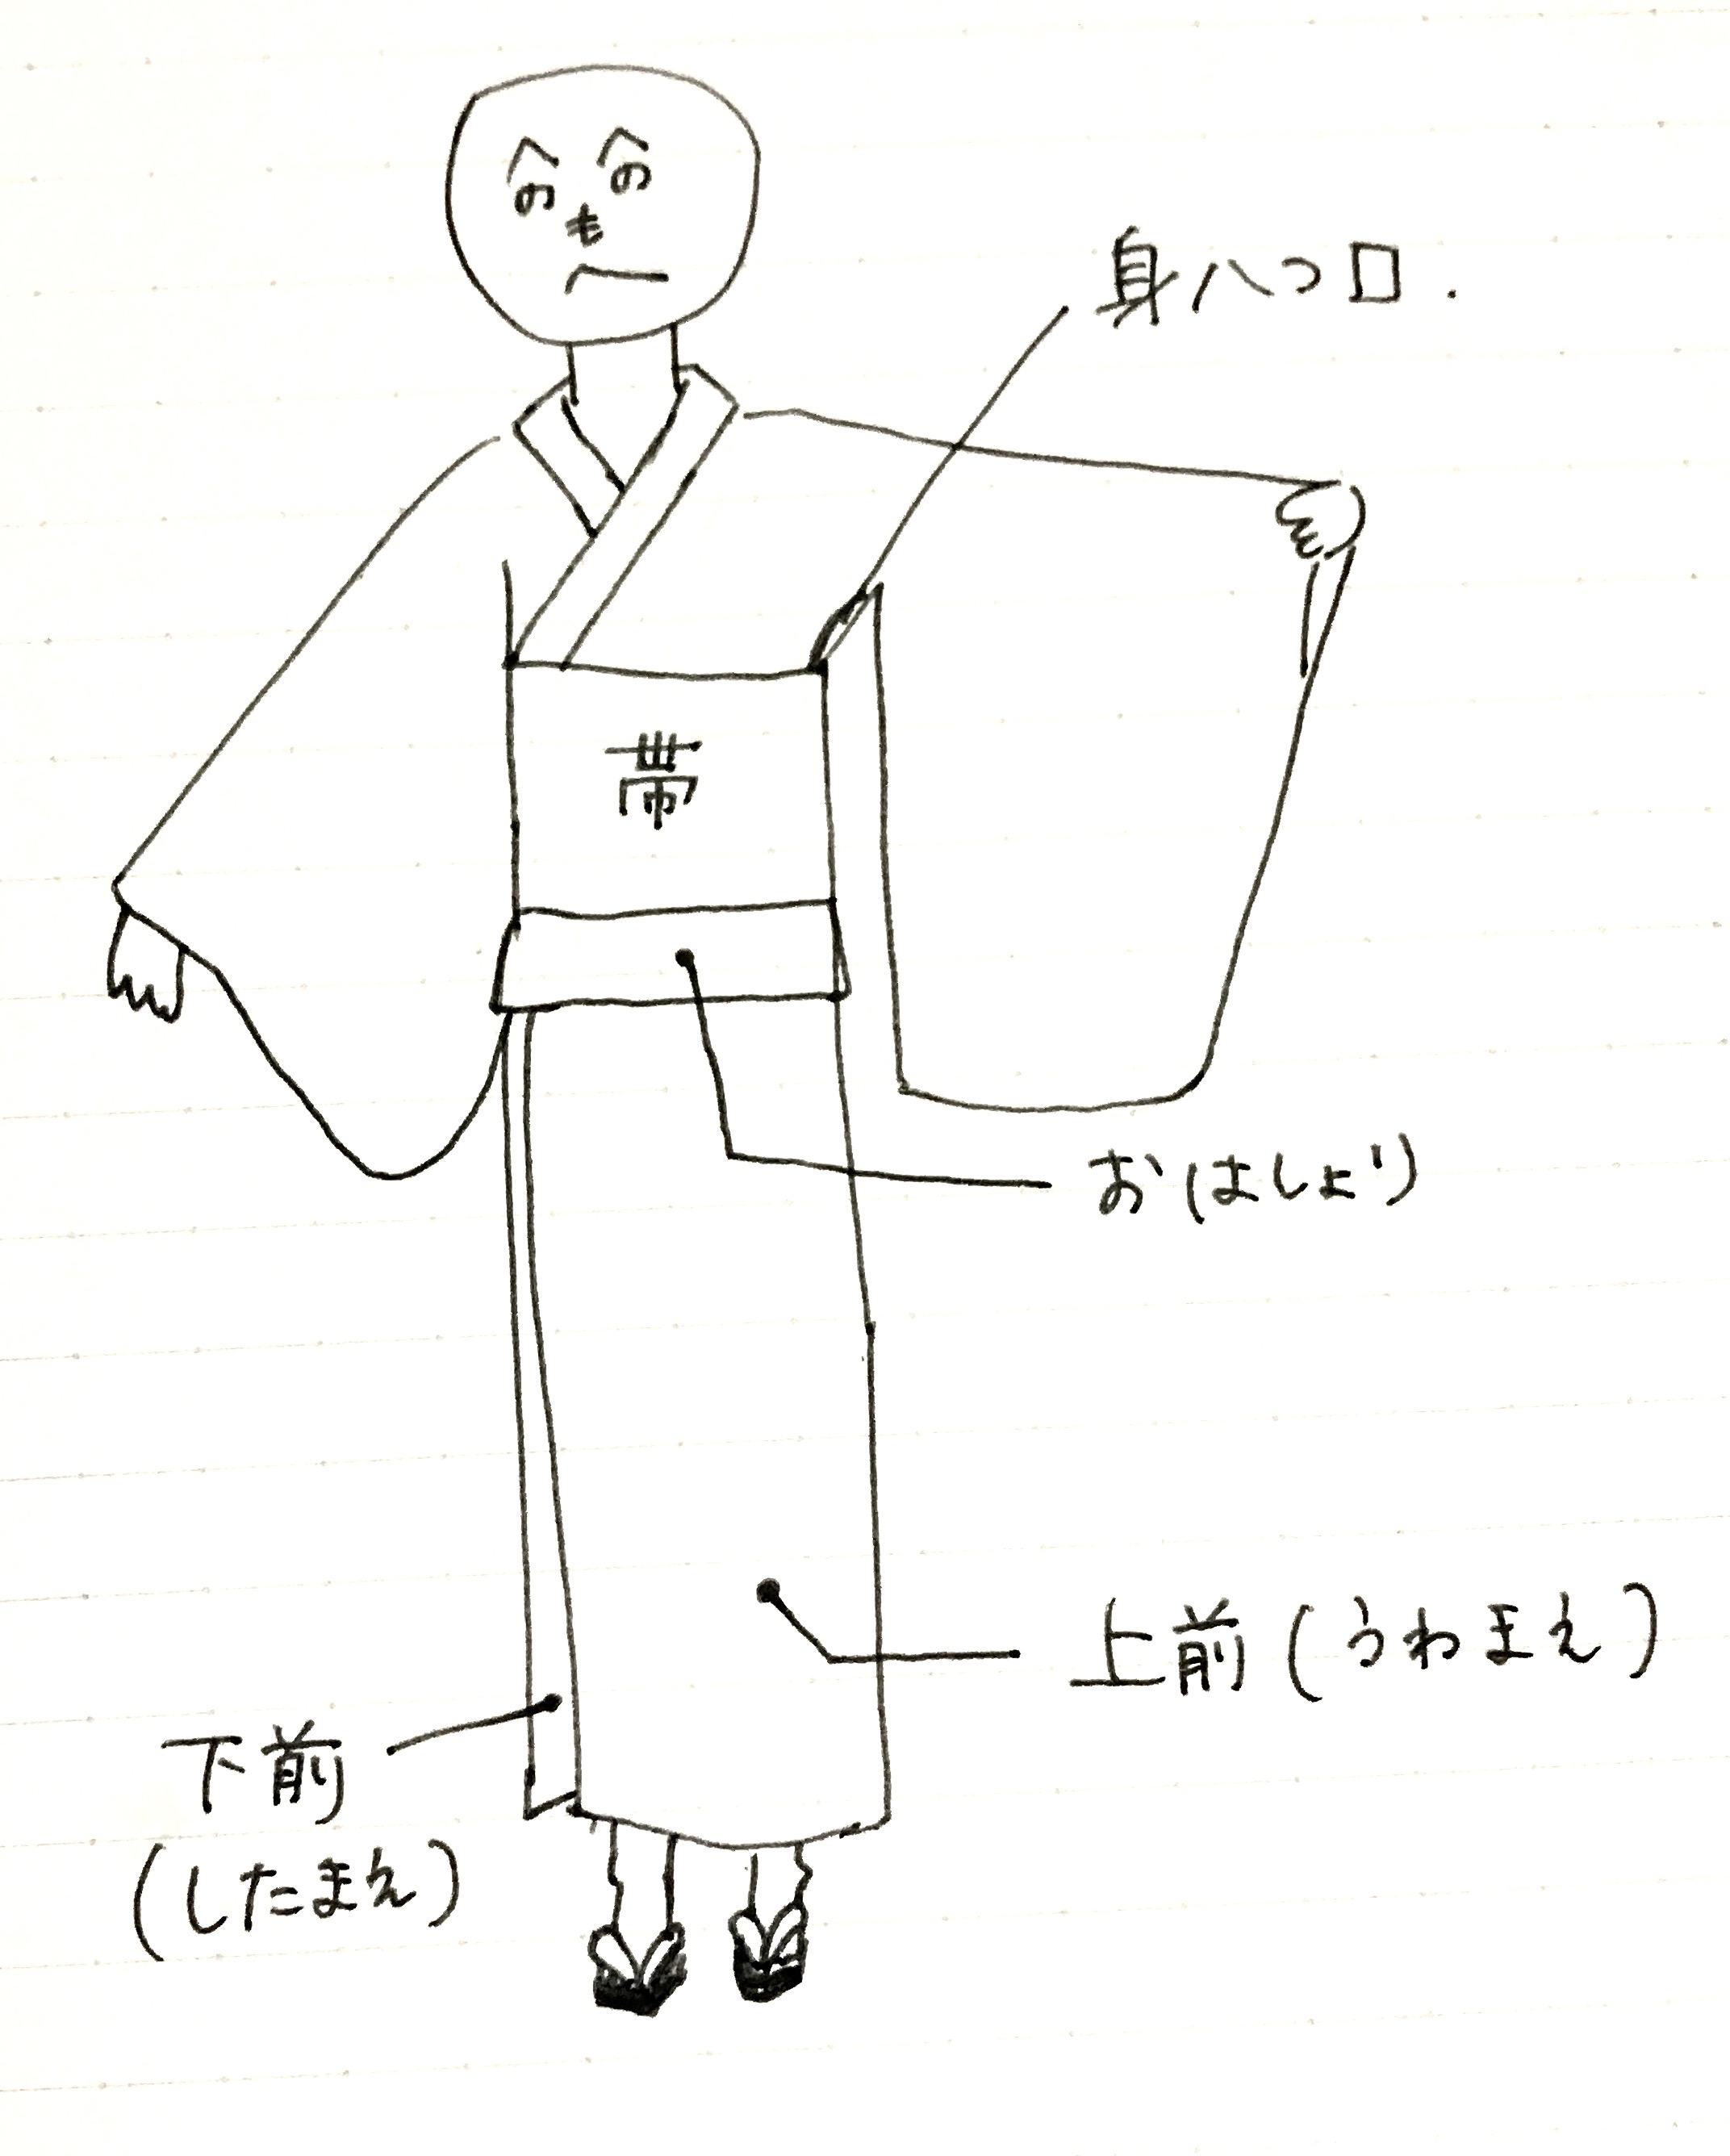 へ へ
の の
も
へ
身八つ口.
帯
おはしょり
上前(うわまえ)
下前
(したまえ)